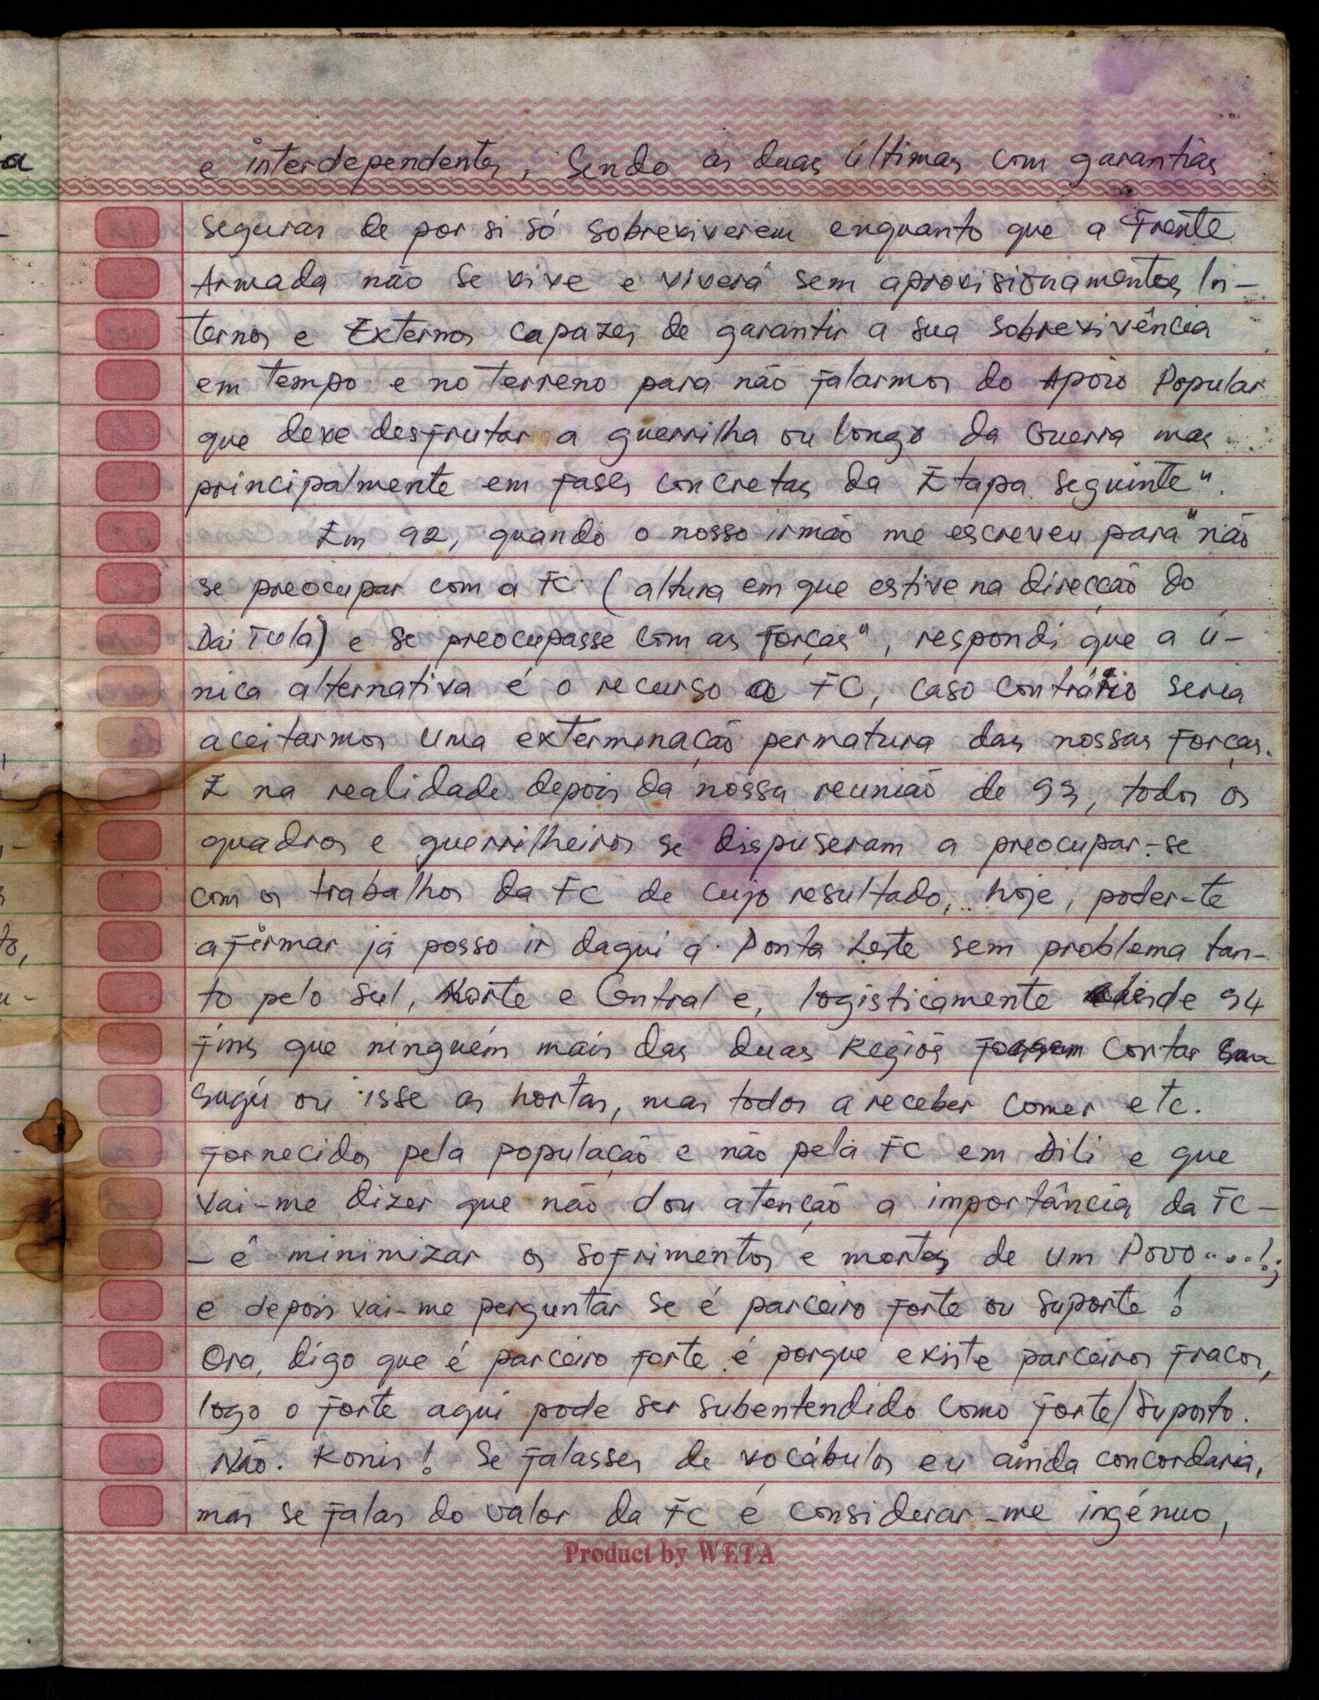 e interdependentes, sendo as duas últimas com garantias
seguras de por si só sobreviverem enquanto que a Frente
Armada não se vive e viverá sem aprovisionamentos In-
ternos e Externos capazes de garantir a sua sobrevivência
em tempo e no terreno para não falarmos do Apoio Popular
que deve desfrutar a guerrilha ou longo da Guerra mas
principalmente em fases concretas da Etapa seguinte".
Em 92, quando o nosso irmão me escreveu para "não
se preocupar com a FC (altura em que estive na direcção do
Dai Tula) e se preocupasse com as forças", respondi que a ú-
nica alternativa é o recurso a FC, caso contrário seria
aceitarmos uma exterminação permatura das nossas forças.
E na realidade depois da nossa reunião de 93, todos os
quadros e guerrilheiros se dispuseram a preocupar-se
com os trabalhos da FC de cujo resultado, hoje, poder-te
afirmar já posso ir daqui a Ponta Leste sem problema tan-
to pelo Sul, Norte e Central e, logisticamente desde 94
fins que ninguém mais das duas Regiõs cortar
sugú ou isse as hortas, mas todos a receber comer etc.
fornecidos pela população e não pela FC em Dili e que
vai-me dizer que não dou atenção a importância da FC -
- é minimizar os sofrimentos e mortes de um Povo....!;
e depois vai-me perguntar se é parceiro forte ou suporte!
Ora, digo que é parceiro forte é porque existe parceiros fracos,
logo o forte aqui pode ser subentendido como forte/suporto.
Não. Konis! Se falasses de vocábulos eu ainda concordaria,
mas se falas do valor da FC é considerar-me ingénuo,
Product by WETA
a
to,